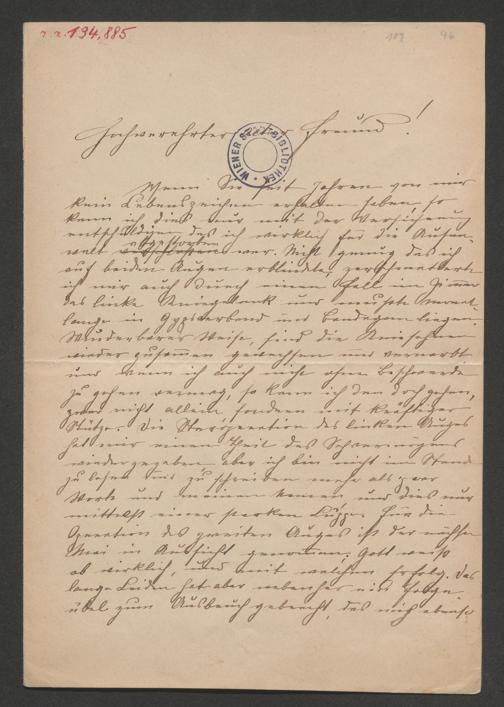 J. N. 194,885
103 96
Hochverehrter lieber Freund!
WIENER STADTBIBLIOTHEK
Wenn Sie seit Jahren von mir
kein Lebenszeichen erhalten haben, so
kann ich dies nur mit der Versicherung
entschuldigen das ich wirklich für die Außen-
abgestorben
welt war. Nicht genug das ich
auf beiden Augen erblindete,
ich mir auch durch einen Fall im Zimmer
das linke und mußte Monat-
lange in Gypsverband und Bandagen liegen.
Wunderbarer Weise, sind die Kniesehnen
wieder zusamen gewachsen und vernarbt
und wenn ich auch nicht ohne Beschwerde
zu gehen vermag, so kann ich den doch gehen,
zwar nicht allein, sondern mit kräftiger
Stütze. Die Staroperation des linken Auges
hat mir einen Theil des Sehvermögens
wiedergegeben aber ich bin nicht im Stand
zu lesen und zu schreiben mehr als paar
Worte und meinen Namen und dies nur
mittelst einer starken Luppe. Für die
Operation des zweiten Auges ist der nächste
Mai in Aussicht genommen; Gott weiß
ob wirklich, und mit welchem Erfolg. Das
lange Leiden hat aber nebenher ein Folge-
übel zum Ausbruch gebracht, das mich ebenso